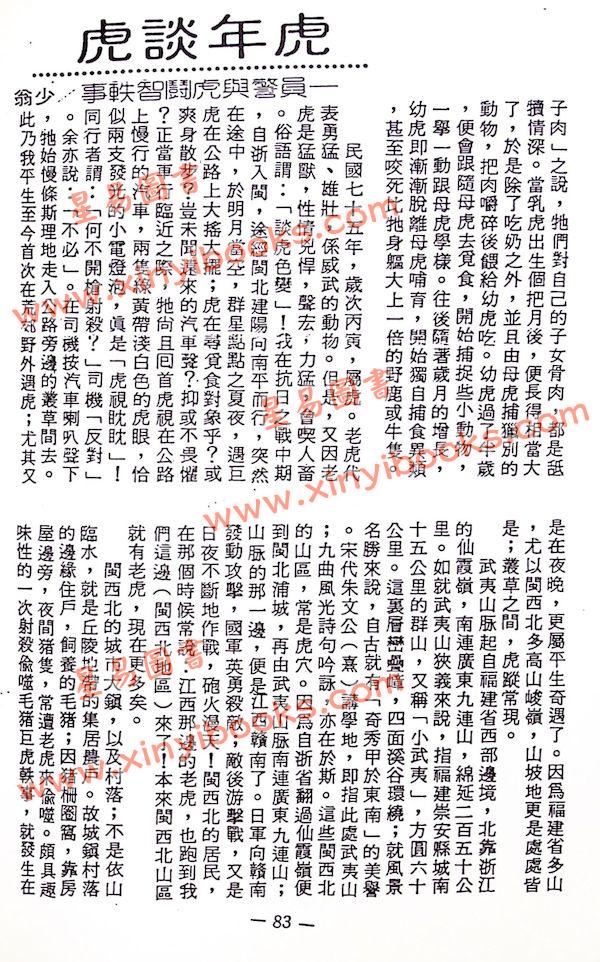 虎年談虎
一員警與虎鬪智軼事 少翁
子肉」之說，牠們對自己的子女骨肉，都是舐
犢情深。當乳虎出生個把月後，便長得相當大
了，於是除了吃奶之外，並且由母虎捕獵別的
動物，把肉嚼碎後餵給幼虎吃。幼虎過了半歲
，便會跟隨母虎去覓食，開始捕捉些小動物，
一舉一動跟母虎學樣。往後隨著歲月的增長，
幼虎即漸漸脫離母虎哺育，開始獨自捕食異類
，甚至咬死比牠身軀大上一倍的野鹿或牛隻。
民國七十五年，歲次丙寅，屬虎。老虎代
表勇猛、雄壯，係威武的動物。但是，又因老
虎是猛獸，性情兇悍，聲宏，力猛，會喫人畜
。俗語謂：「談虎色變」！我在抗日之戰中期
，自浙入閩，途經閩北建陽向南平而行，突然
在途中，於明月當空，群星點點之夏夜，遇巨
虎在公路上大搖大擺；虎在尋覓食對象乎？或
爽身散步？豈未聞遠來的汽車聲？抑或不畏懼
？正當車行臨近之際，牠尚且回首虎視在公路
上慢行的汽車，兩隻條黃帶淺白色的虎眼，恰
似兩支發光的小電燈泡，真是「虎視眈眈」！
同行者謂：「何不開槍射殺？」司機「反對」
。余亦說：「不必」。在司機按汽車喇叭聲下
，牠始慢條斯理地走入公路旁邊的叢草間去。
此乃我平生至今首次在荒郊野外遇虎；尤其又
是在夜晚，更屬平生奇遇了。因為福建省多山
，尤以閩西北多高山峻嶺，山坡地更是處處皆
是；叢草之間，虎蹤常現。
武夷山脈起自福建省西部邊境，北靠浙江
的仙霞嶺，南連廣東九連山，綿延二百五十公
里。如就武夷山狹義來說，指福建崇安縣城南
十五公里的群山，又稱「小武夷」，方圓六十
公里。這裏層巒疊嶂，四面溪谷環繞；就風景
名勝來說，自古就有「奇秀甲於東南」的美譽
。宋代朱文公（熹）講學地，即指此處武夷山
；九曲風光詩句吟詠，亦在於斯。這些閩西北
的山區，常是虎穴。因為自浙省翻過仙霞嶺便
到閩北浦城，再由武夷山脈南連廣東九連山；
山脈的那一邊，便是江西贛南了。日軍向贛南
發動攻擊，國軍英勇殺敵；敵後游擊戰，又是
日夜不斷地作戰，砲火漫天！閩西北的居民，
在那個時候常說：江西那邊的老虎，也跑到我
們這邊（閩西北地區）來了！本來閩西北山區
就有老虎，現在更多矣。
閩西北的城市大鎮，以及村落；不是依山
臨水，就是丘陵地帶的集居農戶。故城鎮村落
的邊緣住戶，飼養的毛豬；因豬柵圈窩，靠房
屋邊旁，夜間豬隻，常遭老虎來偷噬。頗具趣
味性的一次射殺偷噬毛豬巨虎軼事，就發生在
— 83 —
星易圖書
www.xinyibooks.com
星易圖書
www.xinyibooks.com
星易圖書
www.xinyibooks.com